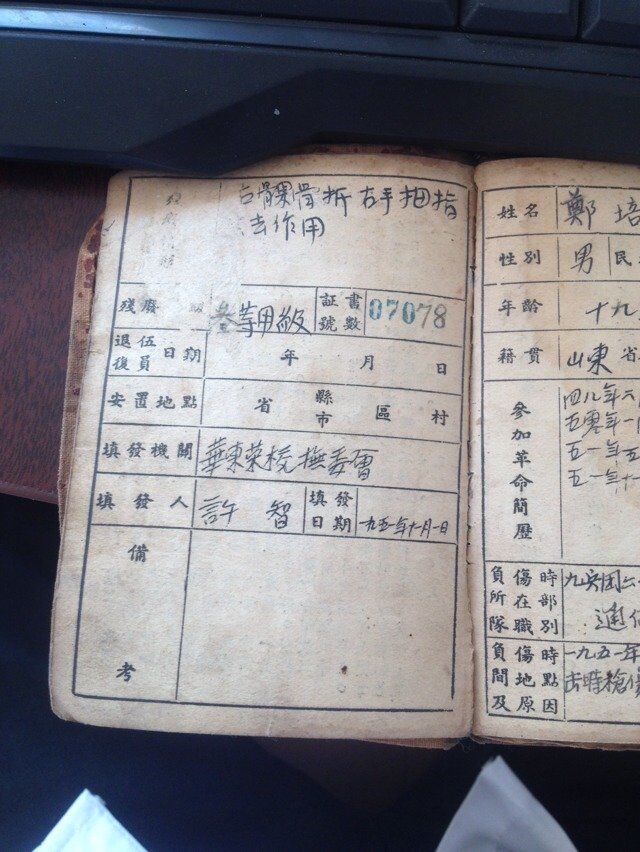 骨折右手拇指
去作用
殘廢 叁等甲級 証書號數 07078
退伍復員日期 年 月 日
安置地點 省 縣市 區 村
填發機關 華東榮校撫委會
填發人 許智 填發日期 一九五一年十月一日
備考
姓名 鄭培
性別 男 民
年齡 十九
籍貫 山東省
參加革命簡歷 四八年六
五零年一
五一年五
五一年十
負傷時所在部隊職別 九兵团六
通信
負傷時間地點及原因 一九五一年
击時槍傷